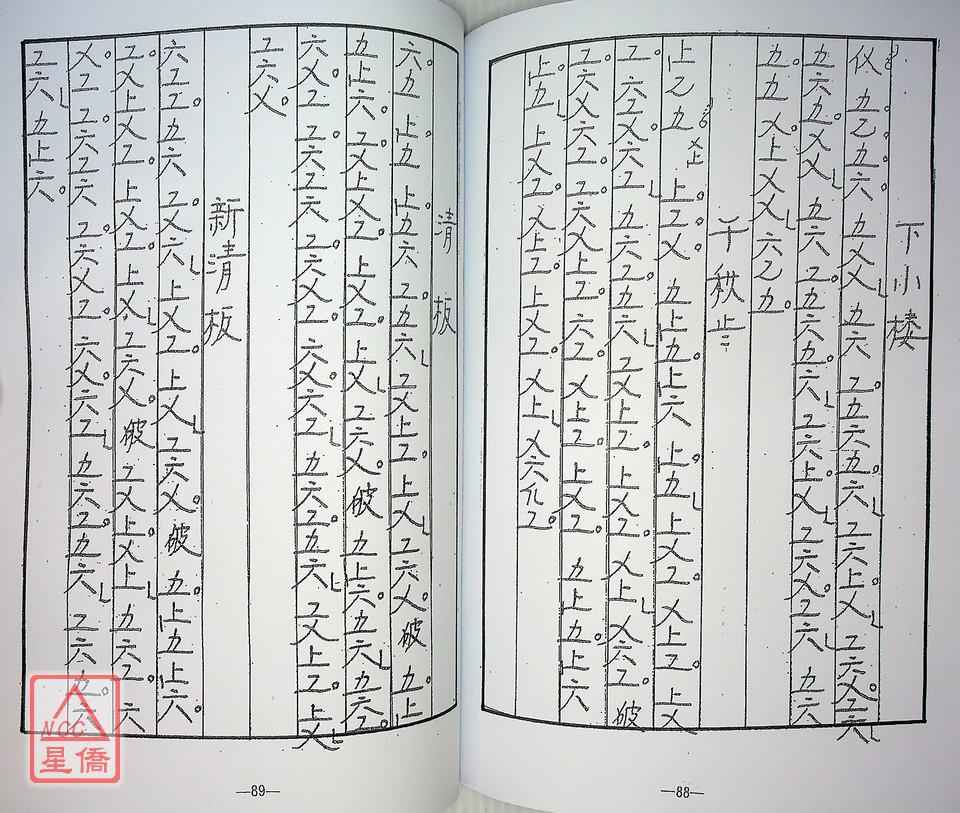 下小楼
伬 五乙五六 五乂乂 五六 工五六五六 工六上乂 工六乂工六
五六五乂乂 五六 工五六五六 工六上乂 工六乂工六 五六
五五乂上乂乂六乙五
千秋
上乙五 乂上 上工乂 五上五上六 上五 上乂工 乂上工 上乂
工 六工乂六工 五六工五六 工乂上工 上乂工 乂上 乂六工 破
工六乂六工 工六乂上工 六工 乂上工 上乂工 五上五上六
上五 上乂工 乂上工 上乂工 乂上 乂六凡工
—88—
清板
六五上五 上五六 工五六 工乂上工 上乂 工六乂 破 五上
五上六 工乂上乂工 上乂工 上乂 工六乂 破 五上六五六五六工
六乂工 工六工六 工六乂工 六乂六工 五六工五六 工乂上工 上乂
工六乂
新清板
六工工五六 工乂六 上乂工 上乂 工六乂 破 五上五上六
工乂上乂工 上乂工 上乂 工六乂 破 工乂上乂上 五六工 六
乂工 工六工六 工六乂工 六乂六工 五六工五六 工六五六
工六五上六
—89—
NCC
星僑